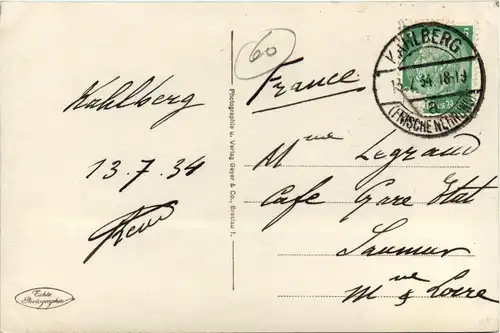 60
Kahlberg
13.7.34
France
Mme Legrand
Café Gare Etat
Saumur
Mne & Loire
KAHLBERG
13. 34.18-19
a
(FRISCHE NEHRUNG)
Photographie u. Verlag Geyer & Co., Breslau 1.
Echte
Photographie